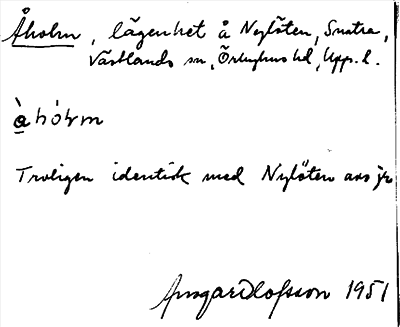 Åholm, lägenhet å Nylöten, Snatra,
Västlands sn, Örbyhus hd, Upp. l.
Troligen identisk med Nylöten
Ansgar Olofsson 1951